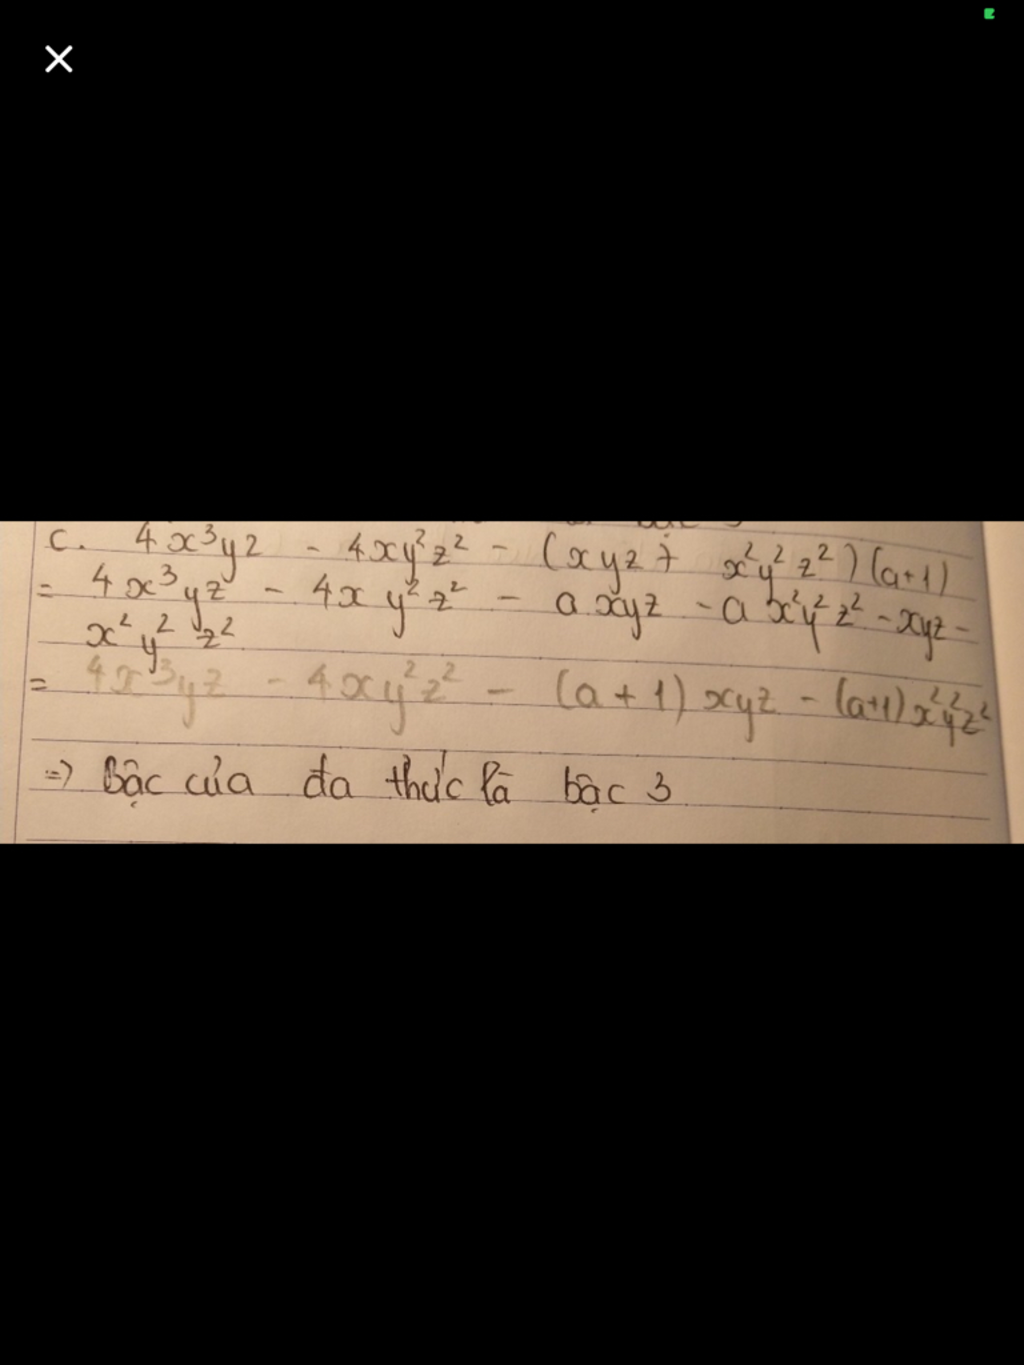 c. 4x³yz - 4xy²z² - (xyz + x²y²z²)(a+1)
= 4x³yz - 4xy²z² - axyz - ax²y²z² - xyz -
x²y²z²
= 4x³yz - 4xy²z² - (a+1)xyz - (a+1)x²y²z²
=> Bậc của đa thức là bậc 3